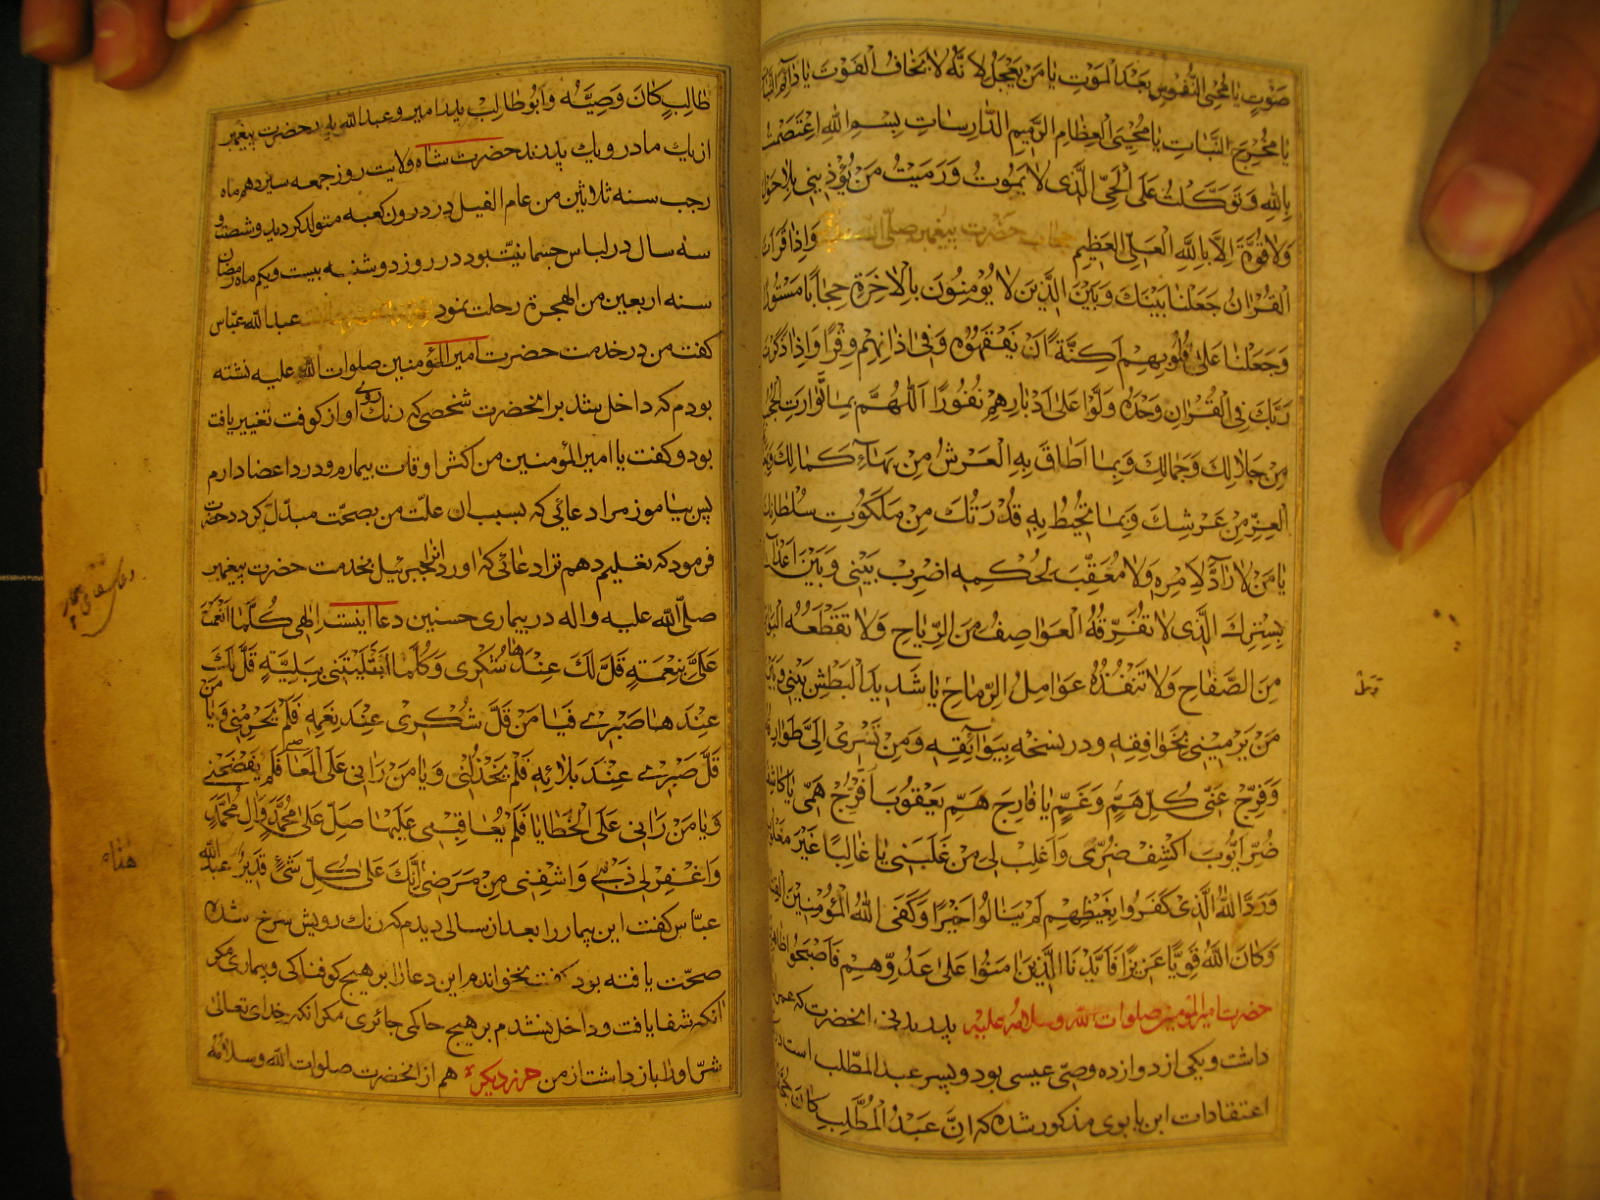 صَوْتٍ يا مُحْيِىَ النُّفُوسِ بَعْدَ الْمَوْتِ يا مَنْ لا يَعْجَلُ لِاَنَّهُ لا يَخافُ الْفَوْتَ يا دائِمَ الثَّباتِ
يا مُخْرِجَ النَّباتِ يا مُحْيِىَ الْعِظامِ الرَّمِيمِ الدّارِساتِ بِسْمِ اللهِ اعْتَصَمْتُ
بِاللهِ وَتَوَكَّلْتُ عَلَى الْحَىِّ الَّذى لا يَمُوتُ وَرَمَيْتُ مَنْ يُؤْذِينى بِلا حَوْلَ
وَلا قُوَّةَ اِلّا بِاللهِ الْعَلِىِّ الْعَظِيمِ حجاب حضرت پیغمبر صلّی الله وَاِذا قَرَأْتَ
الْقُرْانَ جَعَلْنا بَيْنَكَ وَبَيْنَ الَّذِينَ لا يُؤْمِنُونَ بِالْاخِرَةِ حِجابًا مَسْتُورًا
وَجَعَلْنا عَلى قُلُوبِهِمْ اَكِنَّةً اَنْ يَفْقَهُوهُ وَفى اذانِهِمْ وَقْرًا وَاِذا ذَكَرْتَ
رَبَّكَ فِى الْقُرْانِ وَحْدَهُ وَلَّوْا عَلى اَدْبارِهِمْ نُفُورًا اَللّهُمَّ بِما وارَتِ الْحُجُبُ
مِنْ جَلالِكَ وَجَمالِكَ وَبِما اَطافَ بِهِ الْعَرْشُ مِنْ بَهاءِ كَمالِكَ
الْعِزِّ مِنْ عَرْشِكَ وَبِما تُحِيطُ بِهِ قُدْرَتُكَ مِنْ مَلَكُوتِ سُلْطانِكَ
يا مَنْ لا رادَّ لِاَمْرِهِ وَلا مُعَقِّبَ لِحُكْمِهِ اضْرِبْ بَيْنى وَبَيْنَ اَعْدائى
بِسِتْرِكَ الَّذى لا تُفَرِّقُهُ الْعَواصِفُ مِنَ الرِّياحِ وَلا تَقْطَعُهُ
مِنَ الصِّفاحِ وَلا تَنْفُذُهُ عَوامِلُ الرِّماحِ يا شَدِيدَ الْبَطْشِ بَيْنى وَبَيْنَ
مَنْ يَرْمِينى بِخَوافِقِهِ ودر نسخه بِبَوائِقِهِ وَمَنْ تَسْرى اِلَىَّ طَوارِقُهُ
وَفَرِّجْ عَنّى كُلَّ هَمٍّ وَغَمٍّ يا فارِجَ هَمِّ يَعْقُوبَ اَفَرِّجْ هَمّى يا كاشِفَ
ضُرِّ اَيُّوبَ اكْشِفْ ضُرّى وَاغْلِبْ لى مَنْ غَلَبَنى يا غالِبًا غَيْرَ مَغْلُوبٍ
وَرَدَّ اللهُ الَّذِينَ كَفَرُوا بِغَيْظِهِمْ لَمْ يَنالُوا خَيْرًا وَكَفَى اللهُ الْمُؤْمِنِينَ الْقِتالَ
وَكانَ اللهُ قَوِيًّا عَزِيزًا فَاَيَّدْنَا الَّذِينَ امَنُوا عَلى عَدُوِّهِمْ فَاَصْبَحُوا ظاهِرِينَ
حضرت امیر المؤمنین صلوات الله وسلامه علیه پدر بدنی انحضرت که عمران
داشت ویکی از دوازده وصّی عیسی بود وپسر عبد المطّلب است در
اعتقادات ابن بابوی مذکور شده که اِنَّ عَبْدُ الْمُطَّلِبِ كانَ حُجَّةً
قبل
طالِبٍ كانَ وَصِيَّهُ وَاَبُو طالِبْ پدر امیر وعبد الله پدر حضرت پیغمبر
از یك مادر ویك پدرند حضرت شاه ولایت روز جمعه سیزدهم ماه
رجب سنه ثلاثین من عام الفیل در درون کعبه متولد کردید وشصت و
سه سال در لباس جسمانیّت بود در روز دوشنبه بیست ویکم ماه رمضان
سنه اربعین من الهجرة رحلت نمود عبد الله عبّاس
کفت من در خدمت حضرت امیر المؤمنین صلوات الله علیه نشته
بودم که داخل شد بر انحضرت شخصی که رنك روی او از کوفت تغییر یافت
بود وکفت یا امیر المؤمنین من اکثر اوقات بیمارم ودرد اعضا دارم
پس بیاموز مرا دعائی که بسبب ان علّت من بصحّت مبدّل کردد حضرت
فرمود که تعلیم دهم ترا دعائی که اورد انرا جبرئیل بخدمت حضرت پیغمبر
صلّی الله علیه واله در بیماری حسنین دعا اینست اِلهى كُلَّما اَنْعَمْتَ
عَلَىَّ بِنِعْمَةٍ قَلَّ لَكَ عِنْدَها شُكْرى وَكُلَّما ابْتَلَيْتَنى بِبَلِيَّةٍ قَلَّ لَكَ
عِنْدَها صَبْرى فَيا مَنْ قَلَّ شُكْرى عِنْدَ نِعَمِهِ فَلَمْ يَحْرِمْنى وَيا مَنْ
قَلَّ صَبْرى عِنْدَ بَلائِهِ فَلَمْ يَخْذُلْنى وَيا مَنْ رَانى عَلَى الْمَعاصى فَلَمْ يَفْضَحْنى
وَيا مَنْ رَانى عَلَى الْخَطايا فَلَمْ يُعاقِبْنى عَلَيْها صَلِّ عَلى مُحَمَّدٍ وَالِ مُحَمَّدٍ
وَاغْفِرْ لى ذَنْبى وَاشْفِنى مِنْ مَرَضى اِنَّكَ عَلى كُلِّ شَىْءٍ قَدِيرٌ عبد الله
عبّاس کفت این بیمار را بعد از سالی دیدم که رنك رویش سرخ شده
صحّت یافته بود کفت نخواندم این دعا را بر هیچ کوفناکی وبیماری مکر
انکه شفا یافت وداخل نشدم بر هیچ حاکمی جائری مکر انکه خدای تعالی
شرّ او را باز داشت از من حرز دیکر هم از انحضرت صلوات الله وسلامه
هذاه